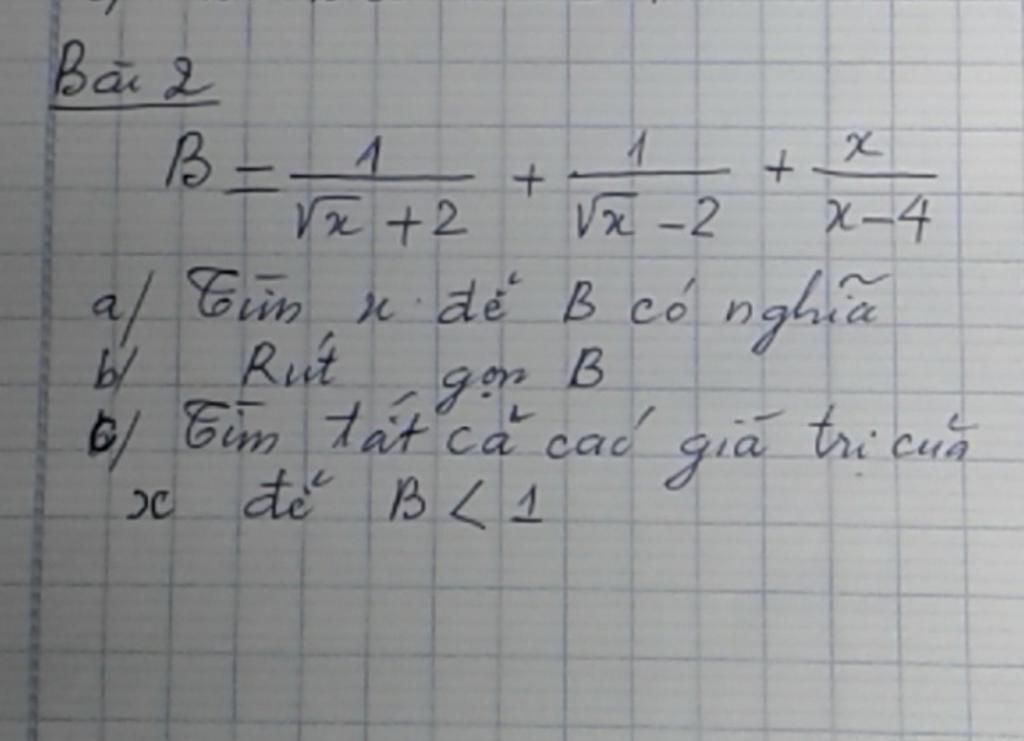 Bài 2
B = 1/(√x + 2) + 1/(√x - 2) + x/(x - 4)
a/ Tìm x để B có nghĩa
b/ Rút gọn B
c/ Tìm tất cả các giá trị của
x để B < 1